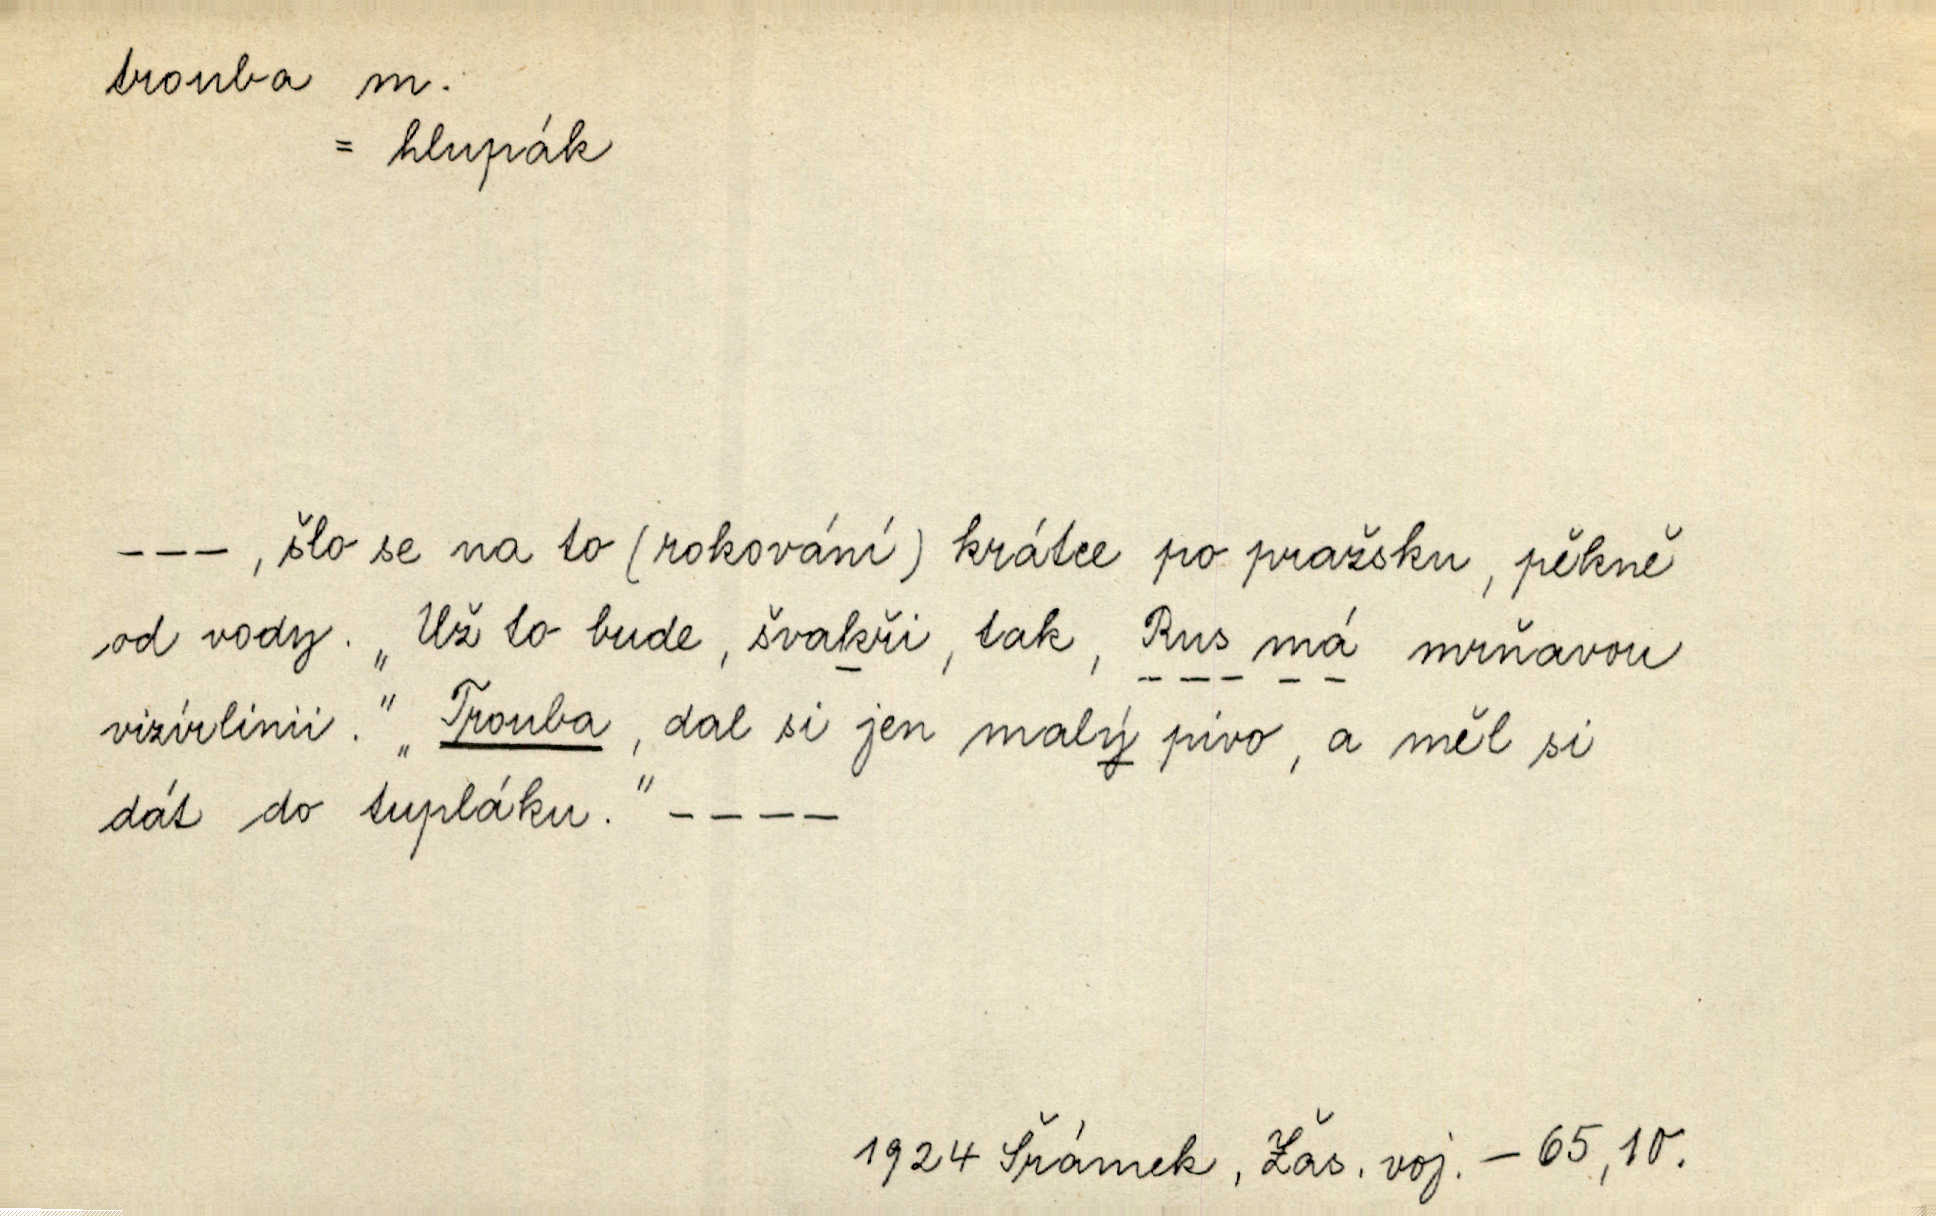 trouba m.
= hlupák
---, šlo se na to (rokování) krátce po pražsku, pěkně
od vody. „Už to bude, švakři, tak, Rus má mrňavou
vizírlinii." „Trouba, dal si jen malý pivo, a měl si
dát do tupláku." ----
1924 Šrámek, Žas. voj. – 65, 10.